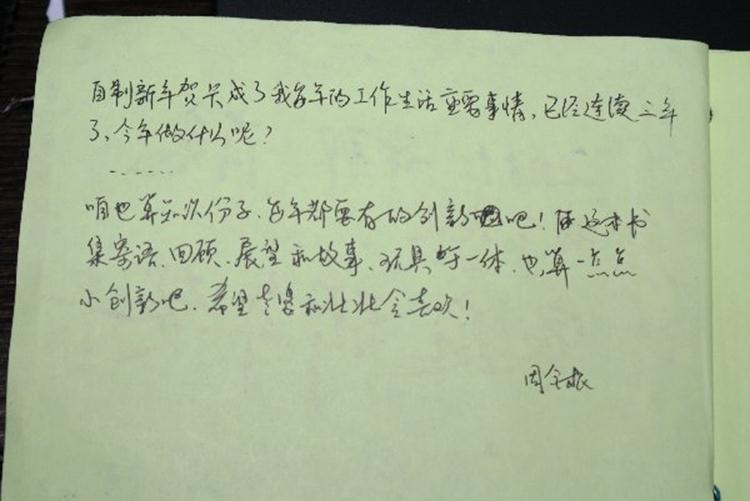 自制新年贺卡成了我每年的工作生活重要事情，已经连续三年
了，今年做什么呢？
……
咱也算知识份子，每年都要有的创新吧！ 这本书
集寄语、回顾、展望和故事、玩具于一体，也算一点点
小创新吧，希望老婆和壮壮会喜欢！
周全振